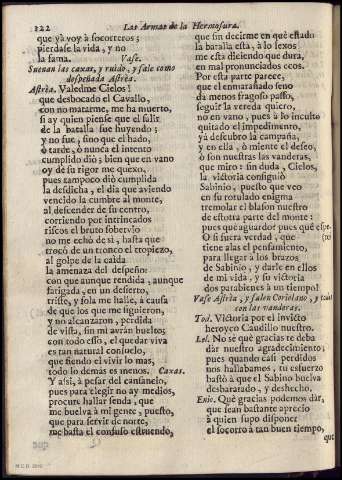 122 Las Armas de la Hermosura.
que yà voy à socorreros;
pierdase la vida, y no
la fama. Vase.
Suenan las caxas, y ruido, y sale como
despeñada Astrèa.
Astrèa. Valedme Cielos!
que desbocado el Cavallo,
con no matarme, me ha muerto,
si ay quien piense que el salir
de la batalla fue huyendo;
y no fue, sino que el hado,
ò tarde, ò nunca el intento
cumplido diò; bien que en vano
oy de su rigor me quexo,
pues tampoco diò cumplida
la desdicha, el dia que aviendo
vencido la cumbre al monte,
al descender de su centro,
corriendo por intrincados
riscos el bruto sobervio
no me echò de sì, hasta que
trocò de un tronco el tropiezo,
al golpe de la caìda
la amenaza del despeño:
con que aunque rendida, aunque
fatigada, en un desierto,
triste, y sola me halle, à causa
de que los que me siguieron,
y no alcanzaron, perdida
de vista, sin mi avràn bueltos;
con todo esso, el quedar viva
es tan natural consuelo,
que siendo el vivir lo mas,
todo lo demàs es menos. Caxas.
Y assi, à pesar del cansancio,
pues para elegir no ay medios,
procure hallar senda, que
me buelva à mi gente, puesto,
que para servir de norte,
me basta el confuso estruendo,
que sin decirme en què estado
la batalla està, à lo lexos
me està diciendo que dura,
en mal pronunciados ecos.
Por esta parte parece,
que el enmarañado seno
dà menos fragoso passo,
seguir la vereda quiero,
no en vano, pues à lo inculto
quitado el impedimento,
yà descubro la campaña,
y en ella, ò miente el deseo,
ò son nuestras las vanderas,
que miro: sin duda, Cielos,
la victoria consiguiò
Sabinio, puesto que veo
en su rotulado enigma
tremolar el blason nuestro
de estotra parte del monte:
pues què aguardo? pues què espero?
O si fuera verdad, que
tiene alas el pensamiento,
para llegar à los brazos
de Sabinio, y darle en ellos
de mi vida, y su victoria
dos parabienes à un tiempo!
Vase Astrèa, y salen Coriolano, y todos
con las vanderas.
Tod. Victoria por el invicto
heroyco Caudillo nuestro.
Lel. No sè què gracias te deba
dàr nuestro agradecimiento;
pues quando casi perdidos
nos hallabamos, tu esfuerzo
bastò à que el Sabino buelva
desbaratado, y deshecho.
Enio. Què gracias podemos dàr,
que sean bastante aprecio
à quien supo disponer
el socorro à tan buen tiempo,
que